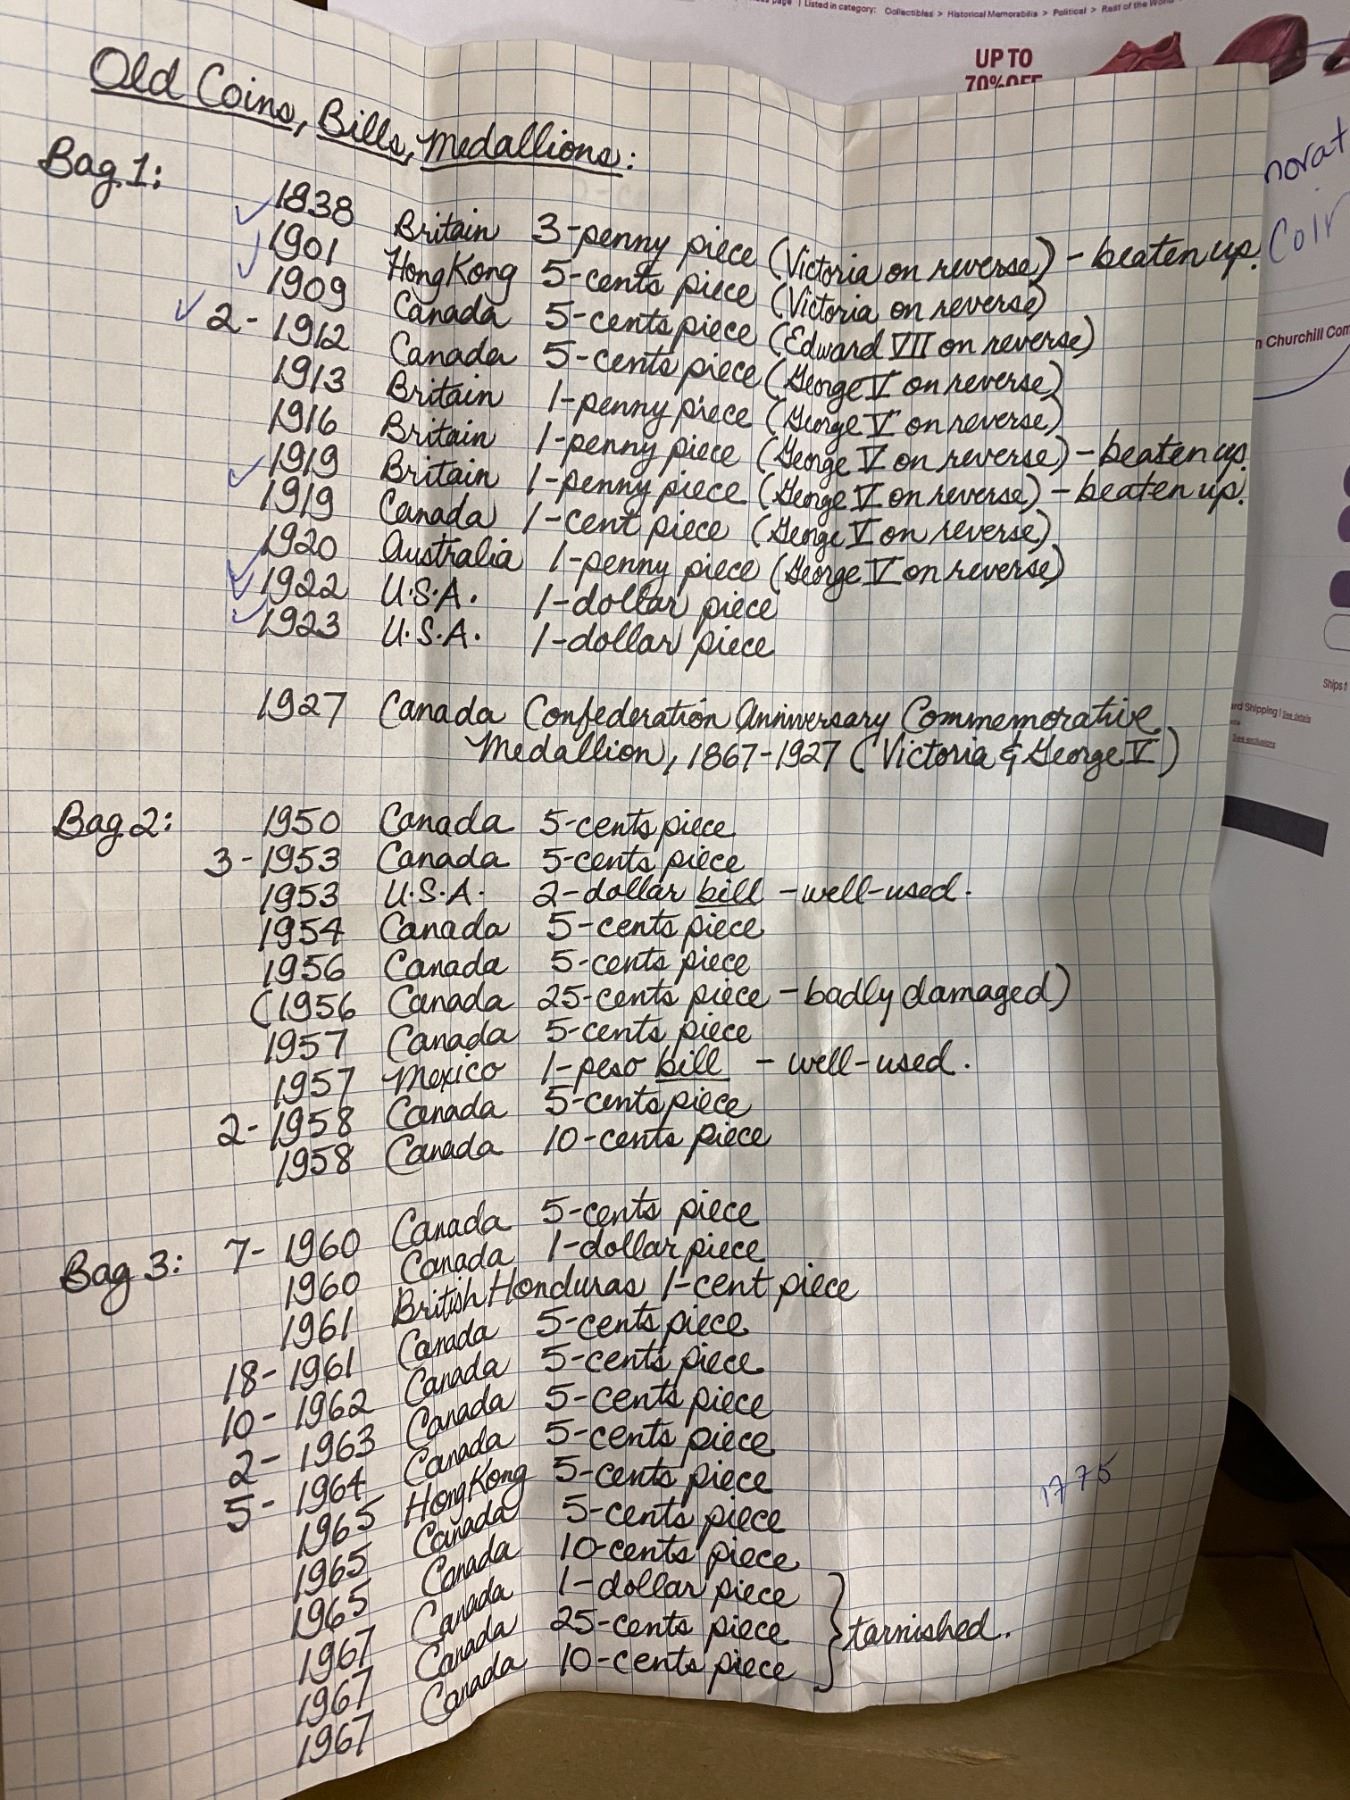 page | Listed in category: Collectibles > Historical Memorabilia > Political > Rest of the World
UP TO
70% OFF
Old Coins, Bills, Medallions:
Bag 1:
✓ 1838 Britain 3-penny piece (Victoria on reverse) - beaten up.
✓ 1901 Hong Kong 5-cents piece (Victoria on reverse)
✓ 1909 Canada 5-cents piece (Edward VII on reverse)
✓ 2- 1912 Canada 5-cents piece (George V on reverse)
1913 Britain 1-penny piece (George V on reverse)
1916 Britain 1-penny piece (George V on reverse) - beaten up.
1919 Britain 1-penny piece (George V on reverse) - beaten up.
✓ 1919 Canada 1-cent piece (George V on reverse)
1920 Australia 1-penny piece (George V on reverse)
✓ 1922 U.S.A. 1-dollar piece
✓ 1923 U.S.A. 1-dollar piece
1927 Canada Confederation Anniversary Commemorative
Medallion, 1867-1927 (Victoria & George V)
Bag 2: 1950 Canada 5-cents piece
3- 1953 Canada 5-cents piece
1953 U.S.A. 2-dollar bill - well-used.
1954 Canada 5-cents piece
1956 Canada 5-cents piece
(1956 Canada 25-cents piece - badly damaged)
1957 Canada 5-cents piece
1957 Mexico 1-peso bill - well-used.
2- 1958 Canada 5-cents piece
1958 Canada 10-cents piece
Bag 3: 7- 1960 Canada 5-cents piece
1960 Canada 1-dollar piece
1961 British Honduras 1-cent piece
18- 1961 Canada 5-cents piece
10- 1962 Canada 5-cents piece
2- 1963 Canada 5-cents piece
5- 1964 Canada 5-cents piece
1965 Hong Kong 5-cents piece
1965 Canada 5-cents piece
1965 Canada 10-cents piece
1967 Canada 1-dollar piece
1967 Canada 25-cents piece } tarnished.
1967 Canada 10-cents piece
1775
norat
Coin
n Churchill Com
Ships f
ard Shipping | See details
See exclusions